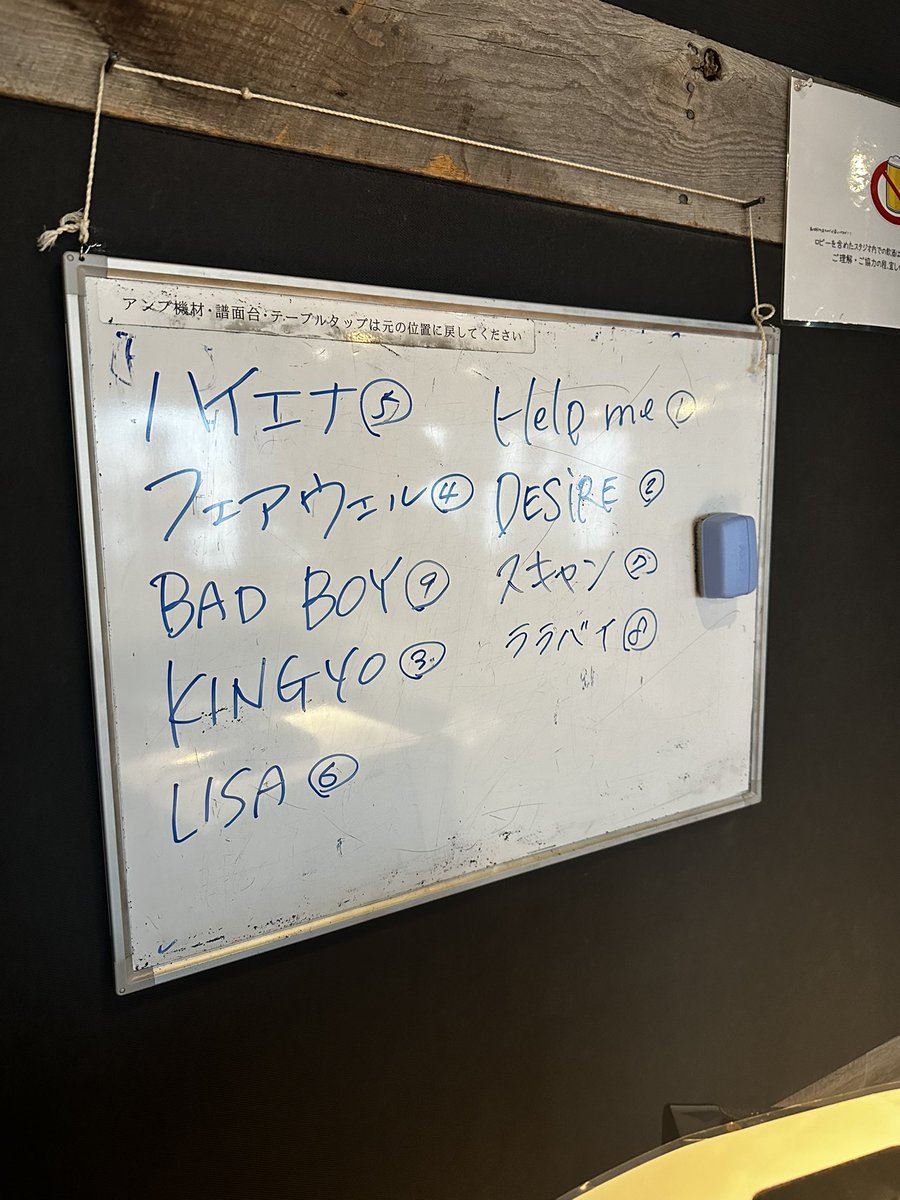 アンプ機材・譜面台・テーブルタップは元の位置に戻してください
ハイエナ⑤
フェアウェル④
BAD BOY⑨
KINGYO③
LISA⑥
Help me①
DESiRE②
スキャン⑦
ララバイ⑧
ロビーを含めたスタジオ内での飲酒は
ご理解・ご協力の程、宜し